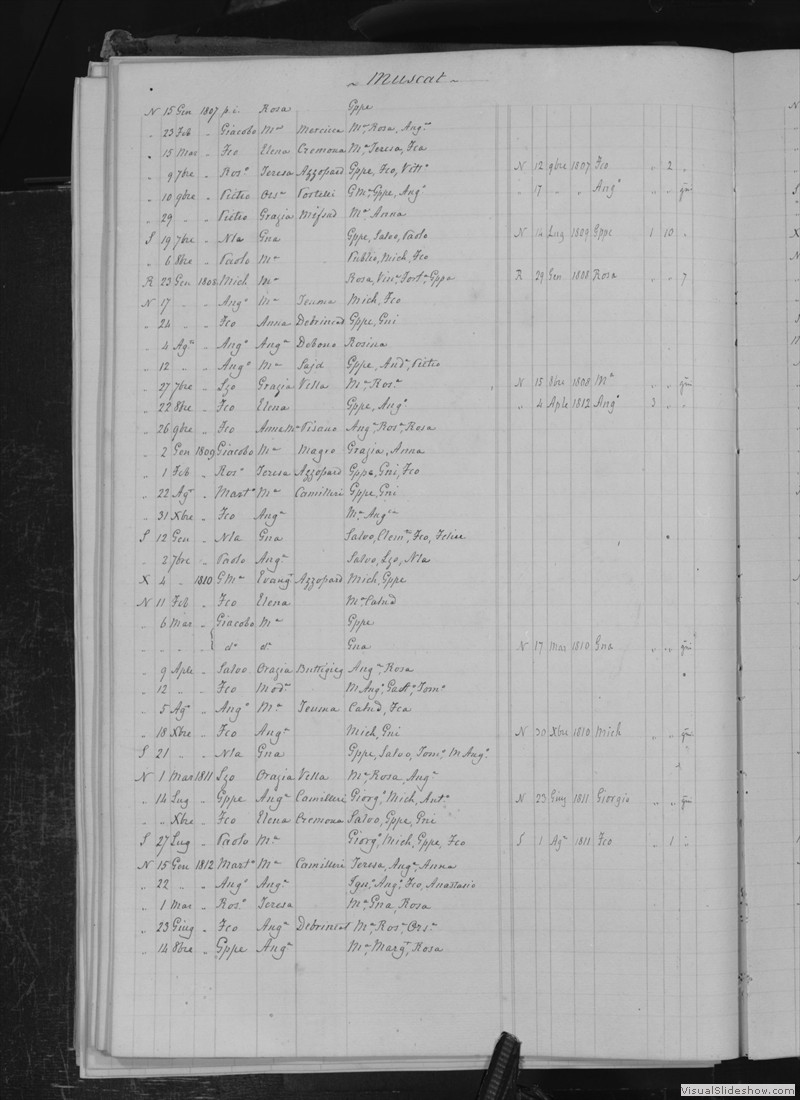 ~ Muscat ~
N 15 Gen 1807 p.i. Rosa Gppe
" 23 Feb " Giacobo Mª Mercieca Mª Rosa, Angª
" 15 Mar " Fco Elena Cremona Mª Teresa, Fca
" 9 7bre " Rosº Teresa Azzopard Gppe, Fco, Vittª N 12 9bre 1807 Fco " 2 "
" 10 9bre " Pietro Orsª Portelli GMª Gppe, Angº " 17 " " Angº " " gni
" 29 " " Pietro Grazia Mifsud Mª Anna
S 19 7bre " Nla Gna Gppe, Salvo, Paolo N 14 Lug 1809 Gppe 1 10 "
" 6 8bre " Paolo Mª Publio, Mich, Fco
R 23 Gen 1808 Mich Mª Rosa, Vinª Fortª Gppa R 29 Gen 1808 Rosa " " 7
N 17 " " Angº Mª Teuma Mich, Fco
" 24 " " Fco Anna Debrincad Gppe, Gni
" 4 Agº " Angº Angª Debono Rosina
" 12 " " Angº Mª Sajd Gppe, Andª, Pietro
" 27 7bre " Lzo Grazia Vella Mª, Rosª N 15 8bre 1808 Mª " " gni
" 22 8bre " Fco Elena Gppe, Angº " 4 Aple 1812 Angº 3 " "
" 26 9bre " Fco AnnaMª Pisano Angª, Rosª, Rosa
" 2 Gen 1809 Giacobo Mª Magro Grazia, Anna
" 1 Feb " Rosº Teresa Azzopard Gppa, Gni, Fco
" 22 Agº " Martº Mª Camilleri Gppe, Gni
" 31 Xbre " Fco Angª Mª Angª
S 12 Gen " Nla Gna Salvo, Clemº, Fco, Felice
" 2 7bre " Paolo Angª Salvo, Lzo, Nla
X 4 " 1810 GMª Evangª Azzopard Mich, Gppe
N 11 Feb " Fco Elena Mª Catnd
" 6 Mar " Giacobo Mª Gppe
" " " " dº dº Gna N 17 Mar 1810 Gna " " gni
" 9 Aple " Salvo Grazia Buttigieg Angª, Rosa
" 12 " " Fco Modª M Angª, Gastº, Tomº
" 5 Agº " Angº Mª Teuma Catnd, Fca
" 18 Xbre " Fco Angª Mich, Gni N 30 Xbre 1810 Mich " " gni
S 21 " " Nla Gna Gppe, Salvo, Tomº, M Angº
N 1 Mar 1811 Lzo Grazia Vella Mª Rosa, Angª
" 14 Lug " Gppe Angª Camilleri Giorgº, Mich, Antº N 23 Giug 1811 Giorgio " " gni
" " Xbre " Fco Elena Cremona Salvo, Gppe, Gni
S 27 Lug " Paolo Mª Giorgº, Mich, Gppe, Fco S 1 Agº 1811 Fco " 1 "
N 15 Gen 1812 Martº Mª Camilleri Teresa, Angª, Anna
" 22 " " Angº Angª Ignº, Angº, Fco, Anastasio
" 1 Mar " Rosº Teresa Mª Gna, Rosa
" 23 Giug " Fco Angª Debrincat Mª, Rosª, Orsª
" 14 8bre " Gppe Angª Mª, Margª, Rosa
VisualSlideshow.com